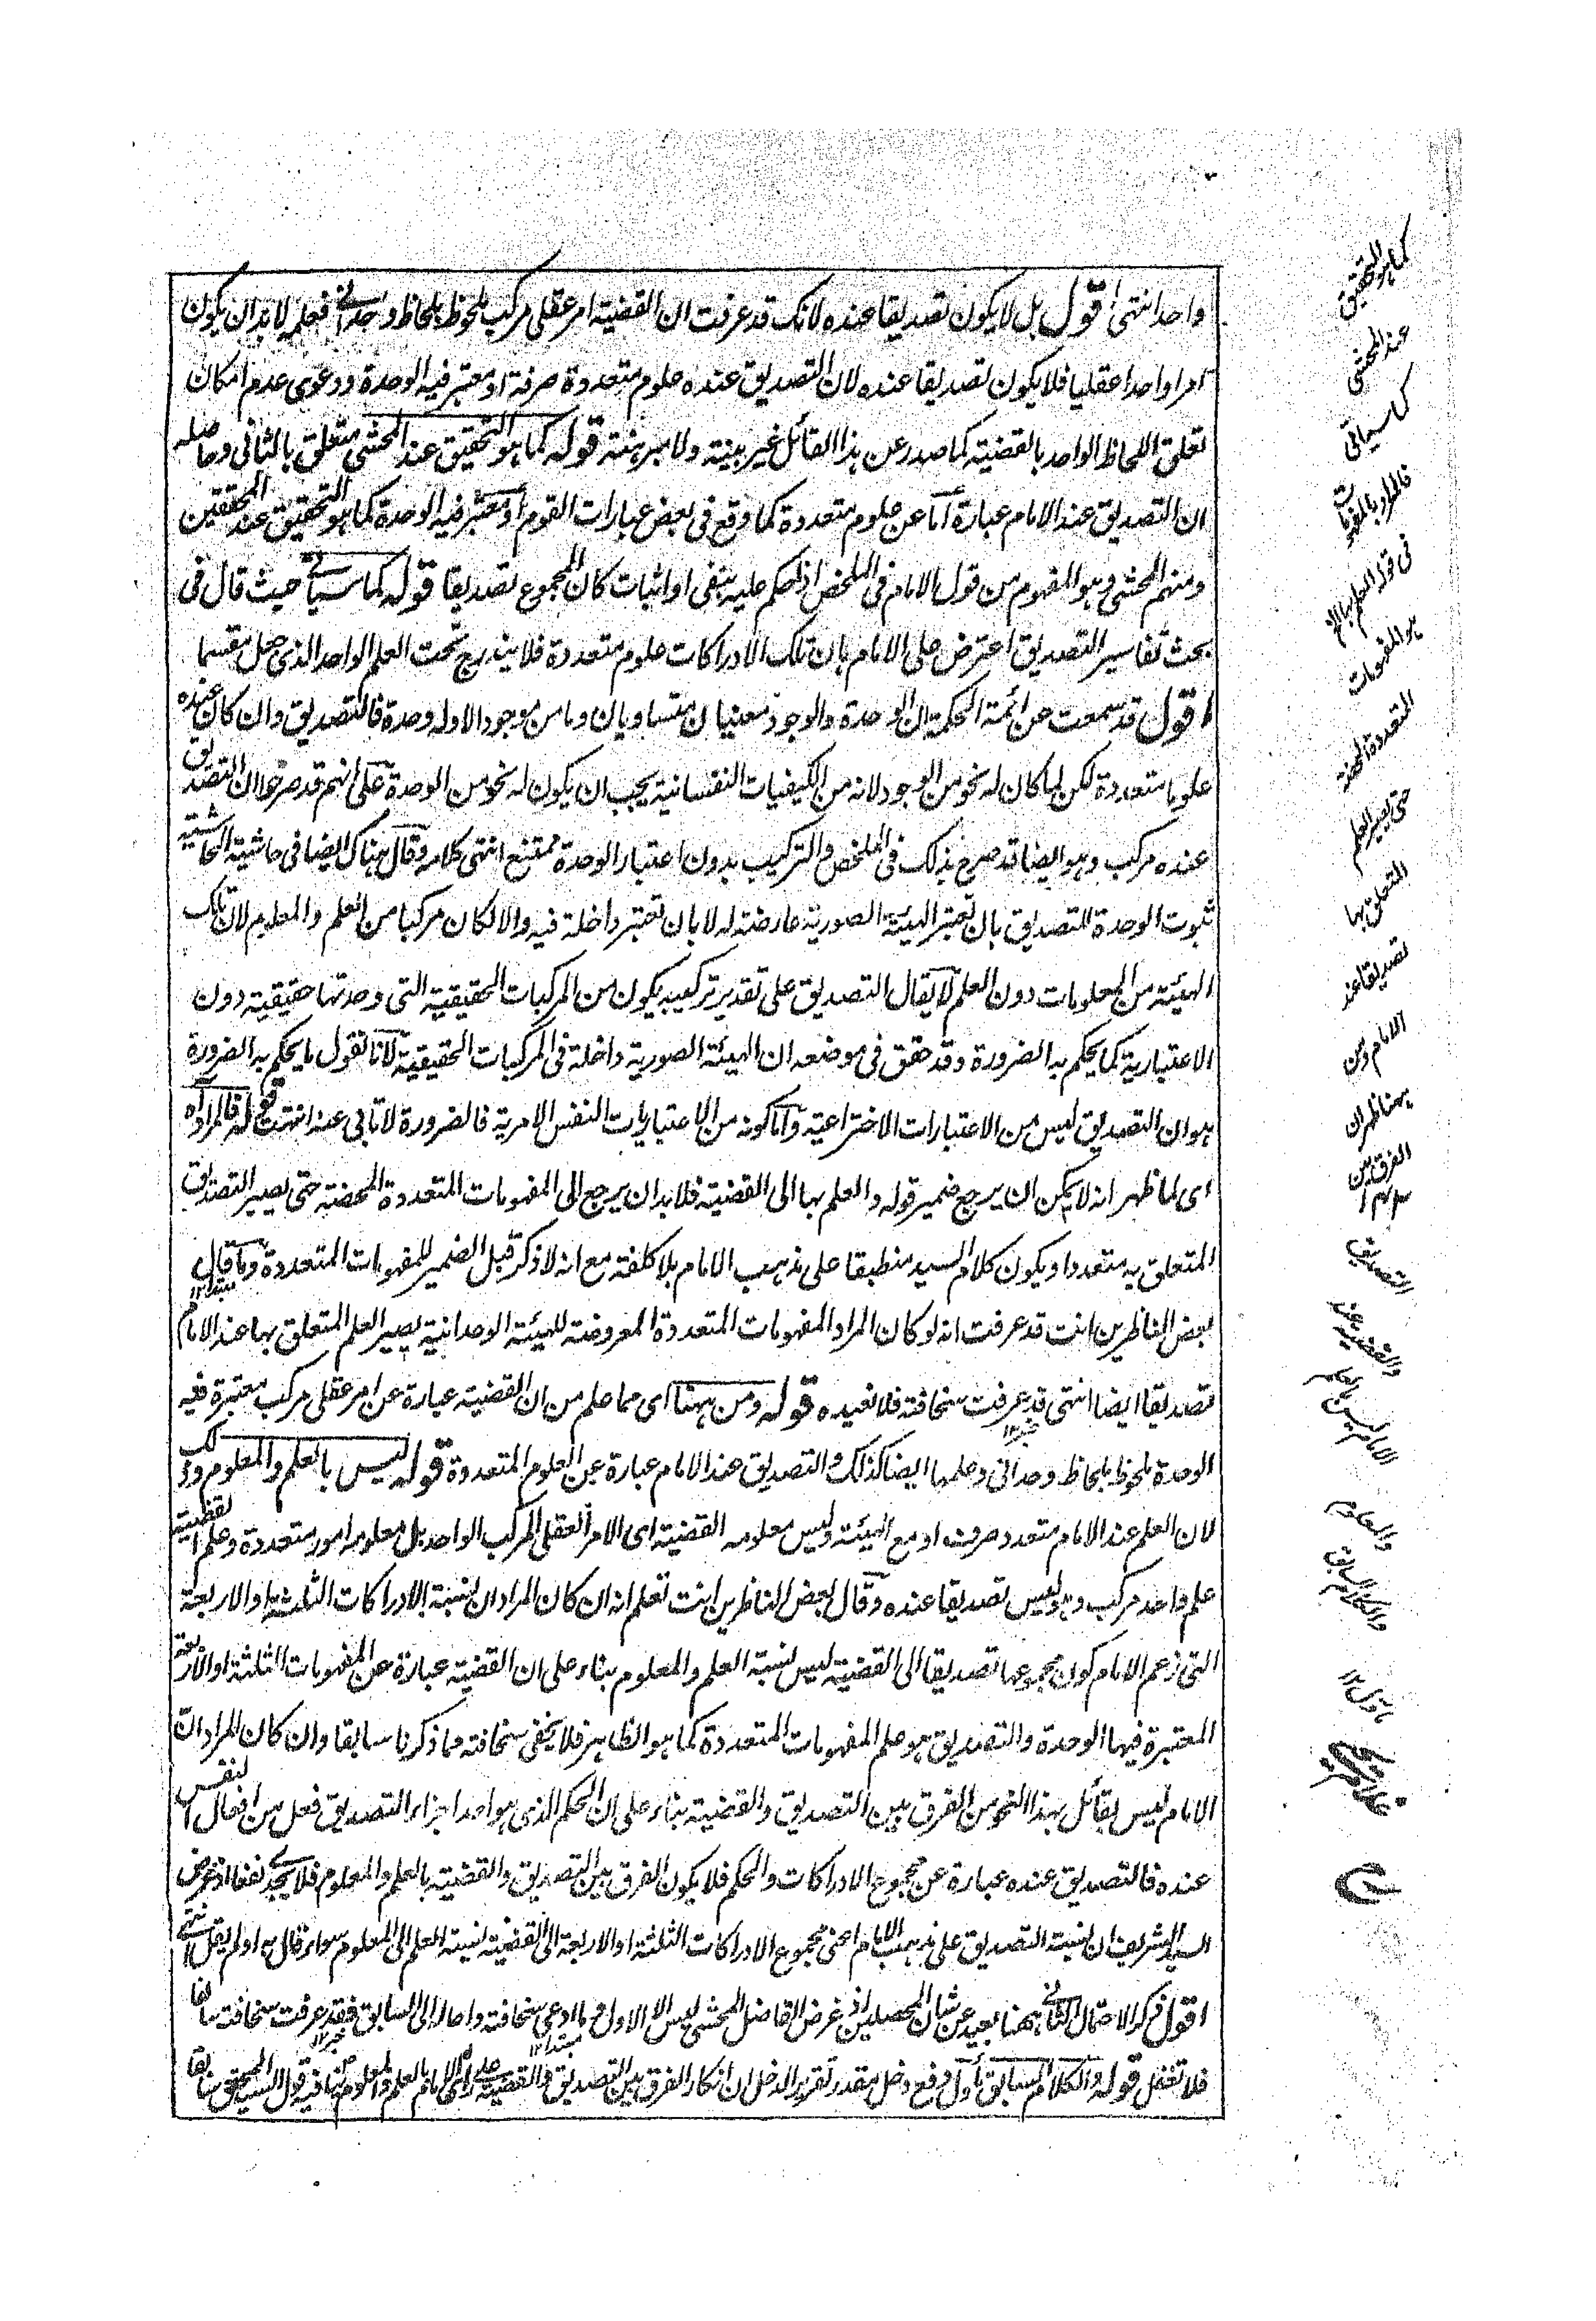 واحدا انتهى اقول بل لا يكون تصديقا عنده لانك قد عرفت ان القضية امر عقلي مركب ملحوظ بلحاظ وحداني فعلمه لا بد ان يكون
امرا واحدا عقليا فلا يكون تصديقا عنده لان التصديق عنده علوم متعددة صرفة او معتبر فيه الوحدة ودعوى عدم امكان
تعلق اللحاظ الواحد بالقضية كما صدر عن هذا القائل غير بينة ولا مبرهنة قوله كما هو التحقيق عند المحشي متعلق بالثاني وحاصله
ان التصديق عند الامام عبارة اما عن علوم متعددة كما وقع في بعض عبارات القوم او معتبر فيه الوحدة كما هو التحقيق عند المحققين
ومنهم المحشي وهو المفهوم من قول الامام في الملخص اذا حكم عليه بنفي او اثبات كان المجموع تصديقا قوله كما سياتي حيث قال في
بحث تفاسير التصديق اعترض على الامام بان تلك الادراكات علوم متعددة فلا يندرج تحت العلم الواحد الذي جعل مقسما
اقول قد سمعت عن ائمة الحكمة ان الوحدة والوجود معنيان متساويان وما من موجود الا وله وحدة فالتصديق وان كان عنده
علوما متعددة لكن لما كان له نحو من الوجود لانه من الكيفيات النفسانية يجب ان يكون له نحو من الوحدة على انهم قد صرحوا ان التصديق
عنده مركب وهو ايضا قد صرح بذلك في الملخص والتركيب بدون اعتبار الوحدة ممتنع انتهى كلامه وقال هناك ايضا في حاشية الحاشية
ثبوت الوحدة للتصديق بان تعتبر الهيئة الصورية عارضة له لا بان تعتبر داخلة فيه والا لكان مركبا من العلم والمعلوم لان تلك
الهيئة من المعلومات دون العلم لا يقال التصديق على تقدير تركيبه يكون من المركبات الحقيقية التي وحدتها حقيقية دون
الاعتبارية كما يحكم به الضرورة وقد حقق في موضعه ان الهيئة الصورية داخلة في المركبات الحقيقية لانا نقول ما يحكم به الضرورة
هو ان التصديق ليس من الاعتبارات الاختراعية واما كونه من الاعتباريات النفس الامرية فالضرورة لا تابى عنه انتهت قوله فالمراد اه
اى لما ظهر انه لا يمكن ان يرجع ضمير قوله والعلم بها الى القضية فلا بد ان يرجع الى المفهومات المتعددة المحضة حتى يصير التصديق
المتعلق به متعددا ويكون كلام السيد منطبقا على مذهب الامام بلا كلفة مع انه لا ذكر قبل الضمير للمفهومات المتعددة وما قال
بعض الناظرين انت قد عرفت انه لو كان المراد المفهومات المتعددة المعروضة للهيئة الوحدانية يصير العلم المتعلق بها عند الامام
تصديقا ايضا انتهى قد عرفت سخافته فلا نعيده قوله ومن ههنا اى مما علم من ان القضية عبارة عن امر عقلي مركب معتبرة فيه
الوحدة ملحوظ بلحاظ وحداني وعلمها ايضا كذلك والتصديق عند الامام عبارة عن العلوم المتعددة قوله ليس بالعلم والمعلوم وذلك
لان العلم عند الامام متعدد صرف او مع الهيئة وليس معلومه القضية اى الامر العقلي المركب الواحد بل معلومه امور متعددة وعلم القضية
علم واحد مركب وهو ليس تصديقا عنده وقال بعض الناظرين انت تعلم انه ان كان المراد ان نسبة الادراكات الثلثة او الاربعة
التي زعم الامام كون مجموعها تصديقا الى القضية ليس نسبة العلم والمعلوم بناء على ان القضية عبارة عن المفهومات الثلثة او الاربعة
المعتبرة فيها الوحدة والتصديق هو علم المفهومات المتعددة كما هو الظاهر فلا يخفى سخافته مما ذكرنا سابقا وان كان المراد ان
الامام ليس بقائل بهذا النحو من الفرق بين التصديق والقضية بناء على ان الحكم الذي هو احد اجزاء التصديق فعل من افعال النفس
عنده فالتصديق عنده عبارة عن مجموع الادراكات والحكم فلا يكون الفرق بين التصديق والقضية بالعلم والمعلوم فلا يجدي نفعا اذ غرض
السيد الشريف ان نسبة التصديق على مذهب الامام اعني مجموع الادراكات الثلثة او الاربعة الى القضية نسبة العلم الى المعلوم سواء قال به او لم يقل انتهى
اقول ذكر الاحتمال الثاني ههنا بعيد عن شان المحصلين اذ غرض الفاضل المحشي ليس الا الاول وما ادعى سخافته واحاله الى السابق فقد عرفت سخافته سالفا
فلا تغفل قوله والكلام السابق ماول دفع دخل مقدر تقرير الدخل ان انكار الفرق بين التصديق والقضية على راى الامام بالعلم والمعلوم ينافيه قول السيد المحقق سابقا
كما هو التحقيق
عند المحشي
كما سياتي
فالمراد بالمفهومات
في قوله العلم بها الخ
هو المفهومات
المتعددة المحضة
حتى يصير العلم
المتعلق بها
تصديقا عند
الامام ومن
ههنا ظهر ان
الفرق بين
التصديق
والقضية عند
الامام ليس بالعلم
والمعلوم
والكلام السابق
ماول ١٢